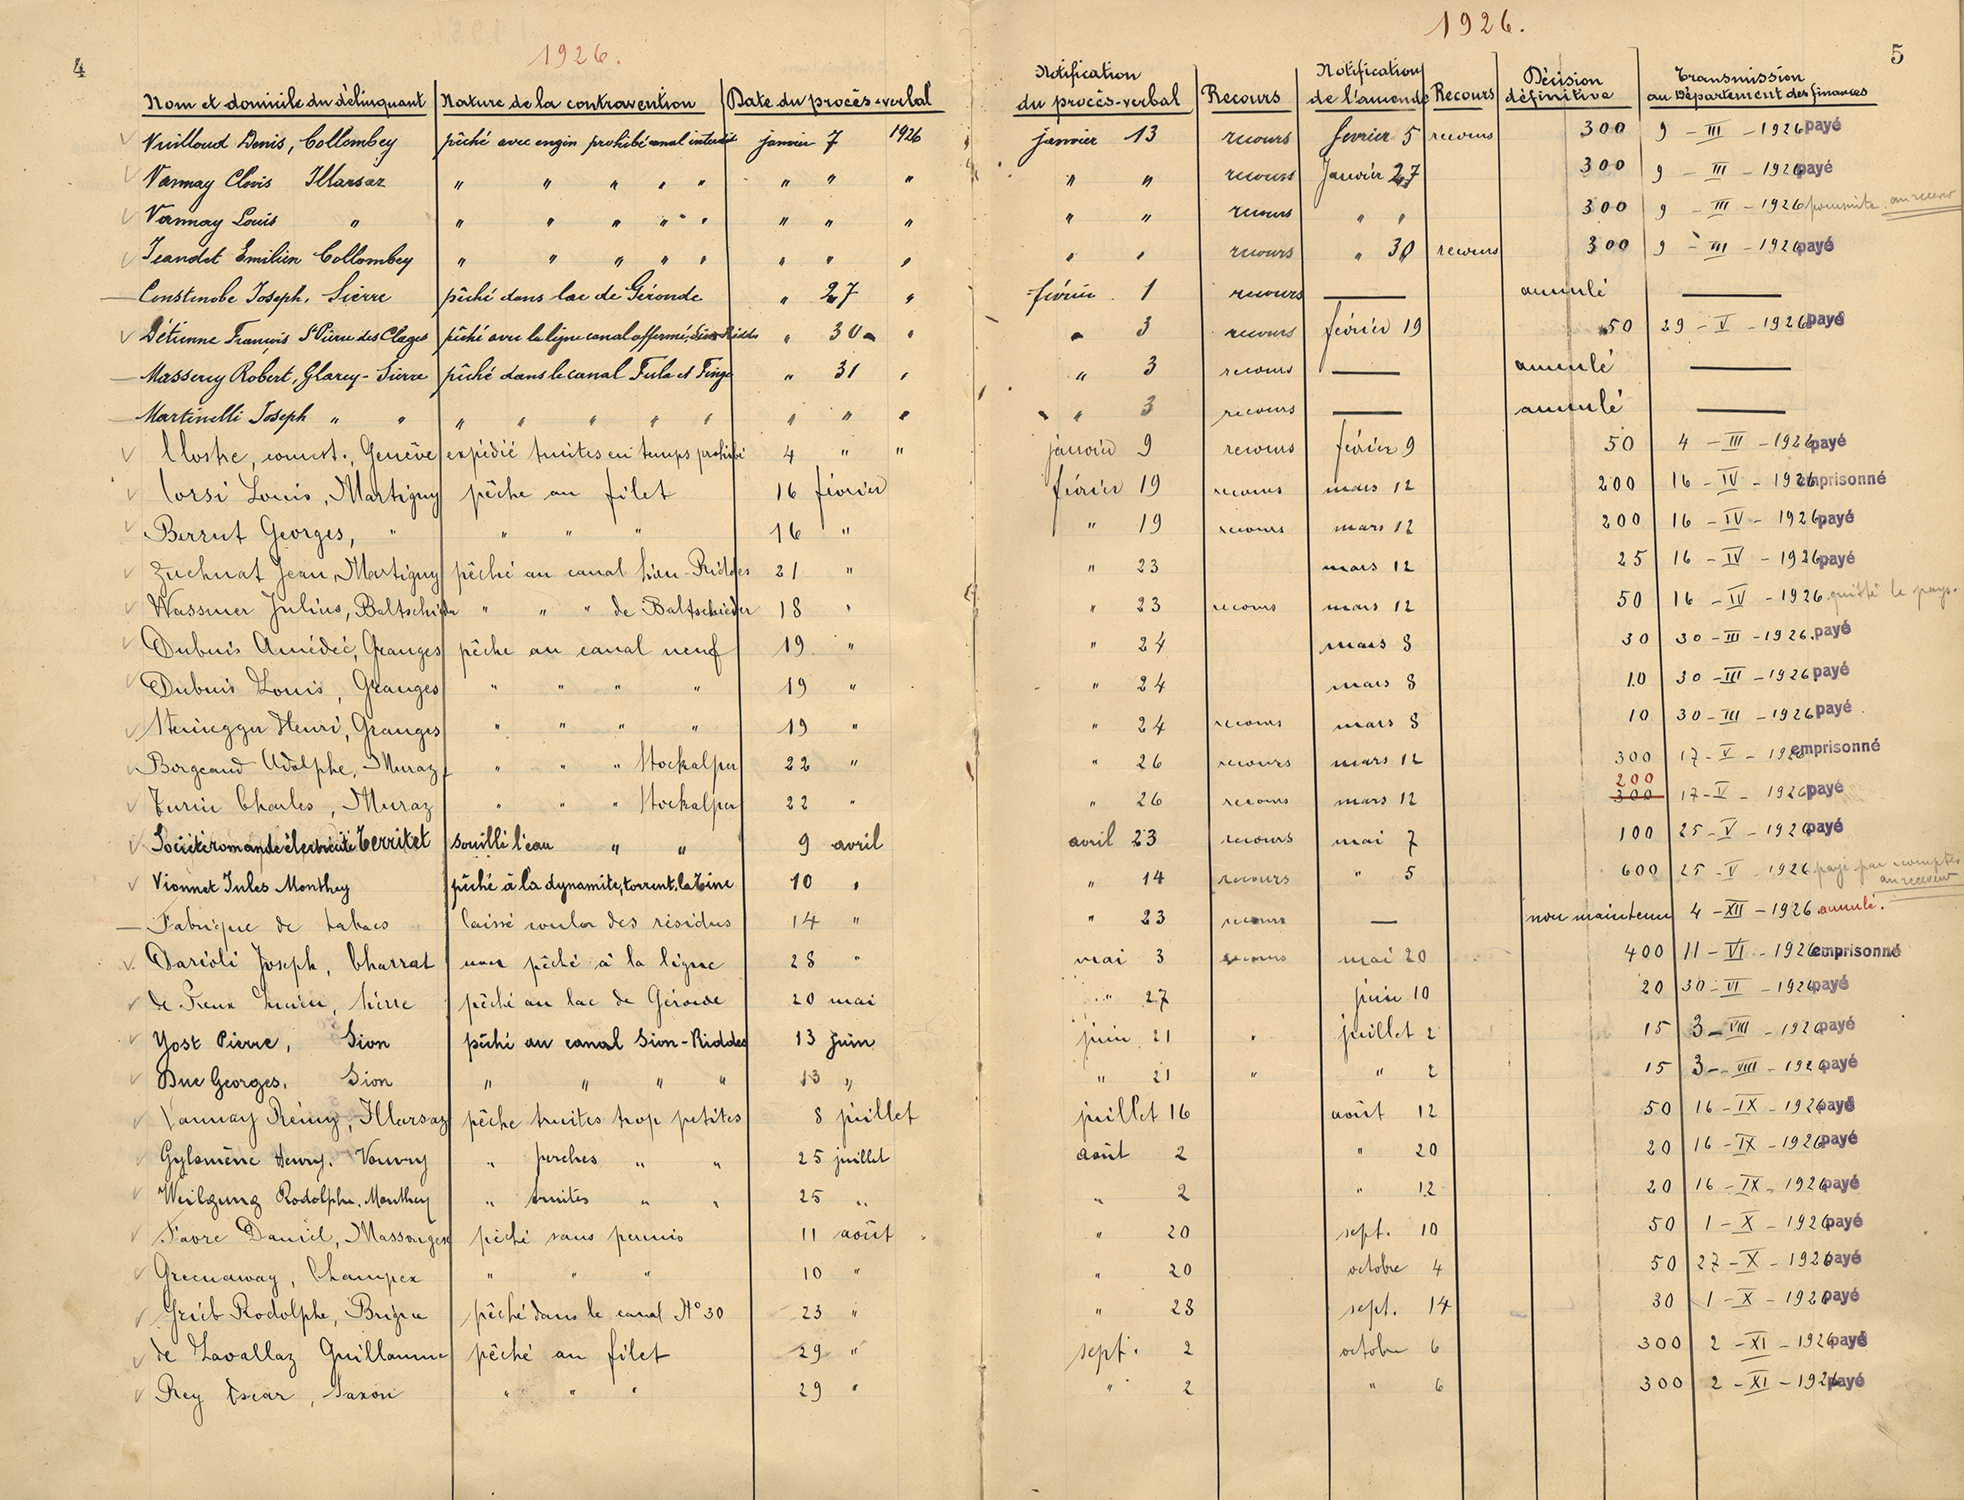 4
1926.
Nom et domicile du délinquant Nature de la contravention Date du procès-verbal
Vuilloud Denis, Collombey pêché avec engin prohibé canal interdit janvier 7 1926
Vannay Clovis Illarsaz " " " " " " " "
Vannay Louis " " " " " " " " "
Jeandet Emilien Collombey " " " " " " " "
Constenobe Joseph, Sierre pêché dans lac de Géronde " 27 "
Détienne François St Pierre des Clages pêché avec la ligne canal affermé, Sion Riddes " 30 "
Masserey Robert, Glarey-Sierre pêché dans le canal Fula et Finge " 31 "
Martinelli Joseph " " " " " " " " " "
comest., Genève expédié truites en temps prohibé 4 " "
Corsi Louis, Martigny pêche au filet 16 février
Berrut Georges, " " " " 16 "
Zuchuat Jean, Martigny pêché au canal Sion-Riddes 21 "
Wassmer Julius, Baltschieder " " " de Baltschieder 18 "
Dubuis Amédée, Granges pêche au canal neuf 19 "
Dubuis Louis, Granges " " " " 19 "
Steinegger Henri, Granges " " " " 19 "
Borgeaud Adolphe, Muraz " " " Stockalper 22 "
Turin Charles, Muraz " " " Stockalper 22 "
Société romande électricité Territet souillé l'eau " " 9 avril
Vionnet Jules Monthey pêché à la dynamite, torrent, la Tine 10 "
Fabrique de tabacs laissé couler des résidus 14 "
Darioli Joseph, Charrat pêché à la ligne 28 "
de Preux Lucien, Sierre pêché au lac de Géronde 20 mai
Yost Pierre, Sion pêché au canal Sion-Riddes 13 juin
Duc Georges, Sion " " " " 13 "
Vannay Rémy, Illarsaz pêche truites trop petites 8 juillet
Henry, Vouvry " perches " " 25 juillet
Rodolphe, Monthey " truites " " 25 "
Favre Daniel, Massongex pêché sans permis 11 août
Greenaway, Champex " " " 10 "
Grieb Rodolphe, Brigue pêché dans le canal N° 30 23 "
de Lavallaz Guillaume pêché au filet 29 "
Rey Oscar, Saxon " " " 29 "
1926.
5
Notification du procès-verbal Recours Notification de l'amende Recours Décision définitive Transmission au Département des finances
janvier 13 recours fevrier 5 recours 300 9 - III - 1926 payé
" " recours Janvier 27 300 9 - III - 1926 payé
" " recours " " 300 9 - III - 1926 poursuite au receveur
" " recours " 30 recours 300 9 - III - 1926 payé
février 1 recours — annulé —
" 3 recours février 19 50 29 - V - 1926 payé
" 3 recours — annulé —
" 3 recours — annulé —
janvier 9 recours février 9 50 4 - III - 1926 payé
février 19 recours mars 12 200 16 - IV - 1926 emprisonné
" 19 recours mars 12 200 16 - IV - 1926 payé
" 23 mars 12 25 16 - IV - 1926 payé
" 23 recours mars 12 50 16 - IV - 1926 quitté le pays.
" 24 mars 8 30 30 - III - 1926. payé
" 24 mars 8 10 30 - III - 1926 payé
" 24 recours mars 8 10 30 - III - 1926 payé
" 26 recours mars 12 300 17 - V - 1926 emprisonné
" 26 recours mars 12 200 300 17 - V - 1926 payé
avril 23 recours mai 7 100 25 - V - 1926 payé
" 14 recours " 5 600 25 - V - 1926 payé par acomptes au receveur
" 23 recours — non maintenu 4 - XII - 1926 annulé.
mai 3 recours mai 20 400 11 - VI - 1926 emprisonné
" 27 juin 10 20 30 - VI - 1926 payé
juin 21 " juillet 2 15 3 - VIII - 1926 payé
" 21 " " 2 15 3 - VIII - 1926 payé
juillet 16 août 12 50 16 - IX - 1926 payé
août 2 " 20 20 16 - IX - 1926 payé
" 2 " 12 20 16 - IX - 1926 payé
" 20 sept. 10 50 1 - X - 1926 payé
" 20 octobre 4 50 27 - X - 1926 payé
" 28 sept. 14 30 1 - X - 1926 payé
sept. 2 octobre 6 300 2 - XI - 1926 payé
" 2 " 6 300 2 - XI - 1926 payé